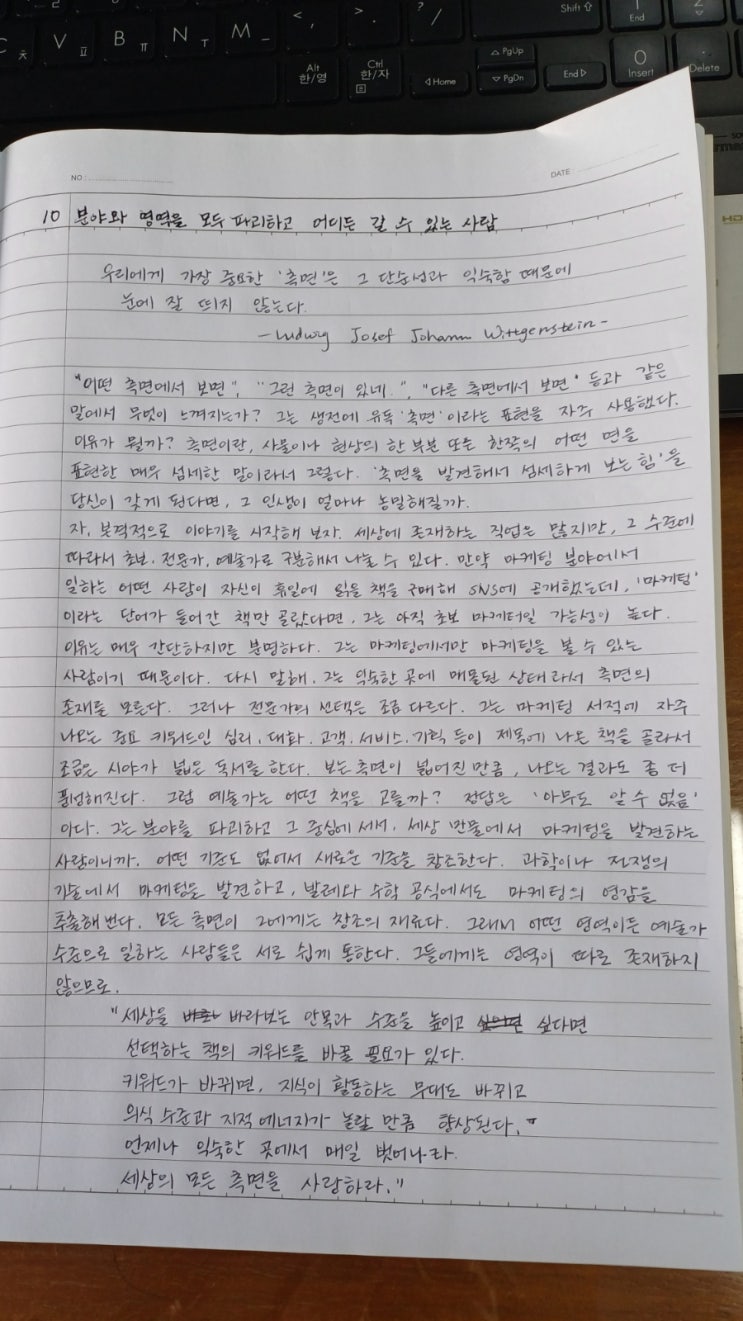 Shift ⇧
End
V ㅍ
B ㅠ
N ㅜ
M ㅡ
< ,
> .
? /
Alt 한/영
Ctrl 한/자
◁ Home
△ PgUp
▽ PgDn
End ▷
0 Insert
. Delete
NO :
DATE
10 분야와 영역을 모두 파괴하고 어디든 갈 수 있는 사람
우리에게 가장 중요한 '측면'은 그 단순성과 익숙함 때문에
눈에 잘 띄지 않는다.
- Ludwig Josef Johann Wittgenstein -
"어떤 측면에서 보면", "그런 측면이 있네.", "다른 측면에서 보면" 등과 같은
말에서 무엇이 느껴지는가? 그는 생전에 유독 '측면'이라는 표현을 자주 사용했다.
이유가 뭘까? 측면이란, 사물이나 현상의 한 부분 또는 한쪽의 어떤 면을
표현한 매우 섬세한 말이라서 그렇다. '측면을 발견해서 섬세하게 보는 힘'을
당신이 갖게 된다면, 그 인생이 얼마나 농밀해질까.
자, 본격적으로 이야기를 시작해 보자. 세상에 존재하는 직업은 많지만, 그 수준에
따라서 초보, 전문가, 예술가로 구분해서 나눌 수 있다. 만약 마케팅 분야에서
일하는 어떤 사람이 자신이 휴일에 읽을 책을 구매해 SNS에 공개했는데, '마케팅'
이라는 단어가 들어간 책만 골랐다면, 그는 아직 초보 마케터일 가능성이 높다.
이유는 매우 간단하지만 분명하다. 그는 마케팅에서만 마케팅을 볼 수 있는
사람이기 때문이다. 다시 말해, 그는 익숙한 곳에 매몰된 상태라서 측면의
존재를 모른다. 그러나 전문가의 선택은 조금 다르다. 그는 마케팅 서적에 자주
나오는 중요 키워드인 심리, 대화, 고객, 서비스, 기획 등이 제목에 나온 책을 골라서
조금은 시야가 넓은 독서를 한다. 보는 측면이 넓어진 만큼, 나오는 결과도 좀 더
풍성해진다. 그럼 예술가는 어떤 책을 고를까? 정답은 '아무도 알 수 없음'
이다. 그는 분야를 파괴하고 그 중심에 서서, 세상 만물에서 마케팅을 발견하는
사람이니까. 어떤 기준도 없어서 새로운 기준을 창조한다. 과학이나 전쟁의
기술에서 마케팅을 발견하고, 발레와 수학 공식에서도 마케팅의 영감을
추출해 낸다. 모든 측면이 그에게는 창조의 재료다. 그래서 어떤 영역이든 예술가
수준으로 일하는 사람들은 서로 쉽게 통한다. 그들에게는 영역이 따로 존재하지
않으므로.
"세상을 바라보는 안목과 수준을 높이고 싶다면
선택하는 책의 키워드를 바꿀 필요가 있다.
키워드가 바뀌면, 지식이 활동하는 무대도 바뀌고
의식 수준과 지적 에너지가 놀랄 만큼 향상된다."
언제나 익숙한 곳에서 매일 벗어나라.
세상의 모든 측면을 사랑하라."